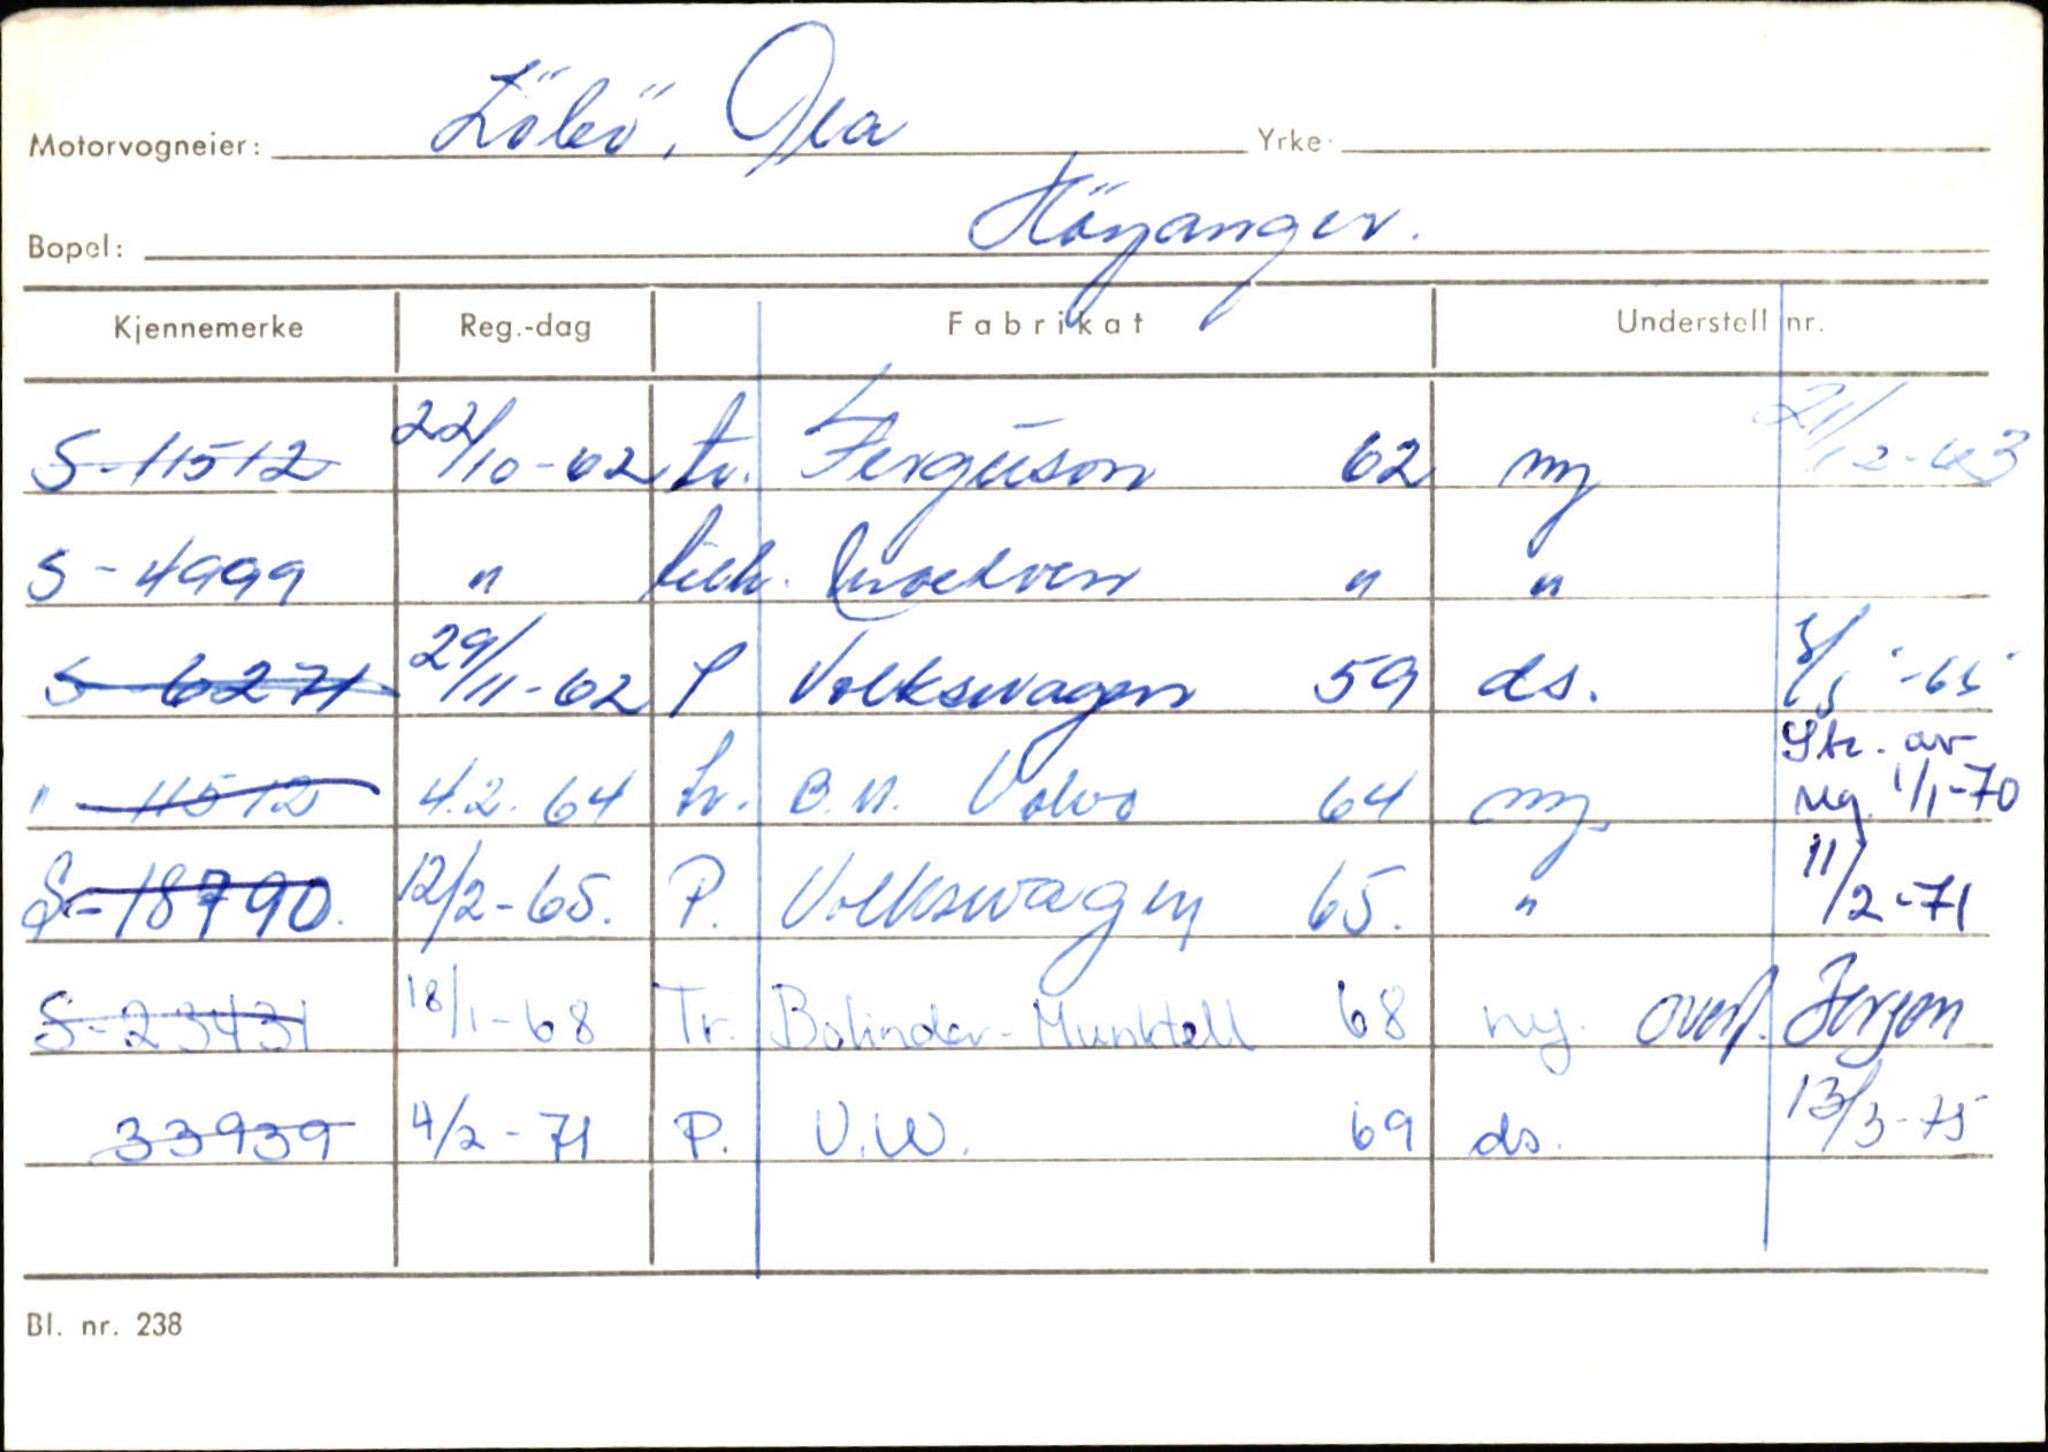 Motorvogneier: Löbö, Ola Yrke:
Bopel: Höyanger.
Kjennemerke Reg.-dag Fabrikat Understell nr.
S-11512 22/10-62 tr. Ferguson 62 ny 21/12-63
S-4999 " " "
S 6271 29/11-62 P Volkswagen 59 ds. -65
" 11512 4.2.64 tr. B.M. Volvo 64 ny. Str. av reg. 1/1-70
S-18790. 12/2-65. P. Volkswagen 65. " 11/2-71
S-23431 18/1-68 Tr. Bolinder-Munktell 68 ny. overf. Jergen
33939 4/2-71 P. V.W. 69 ds. 13/3-75
Bl. nr. 238